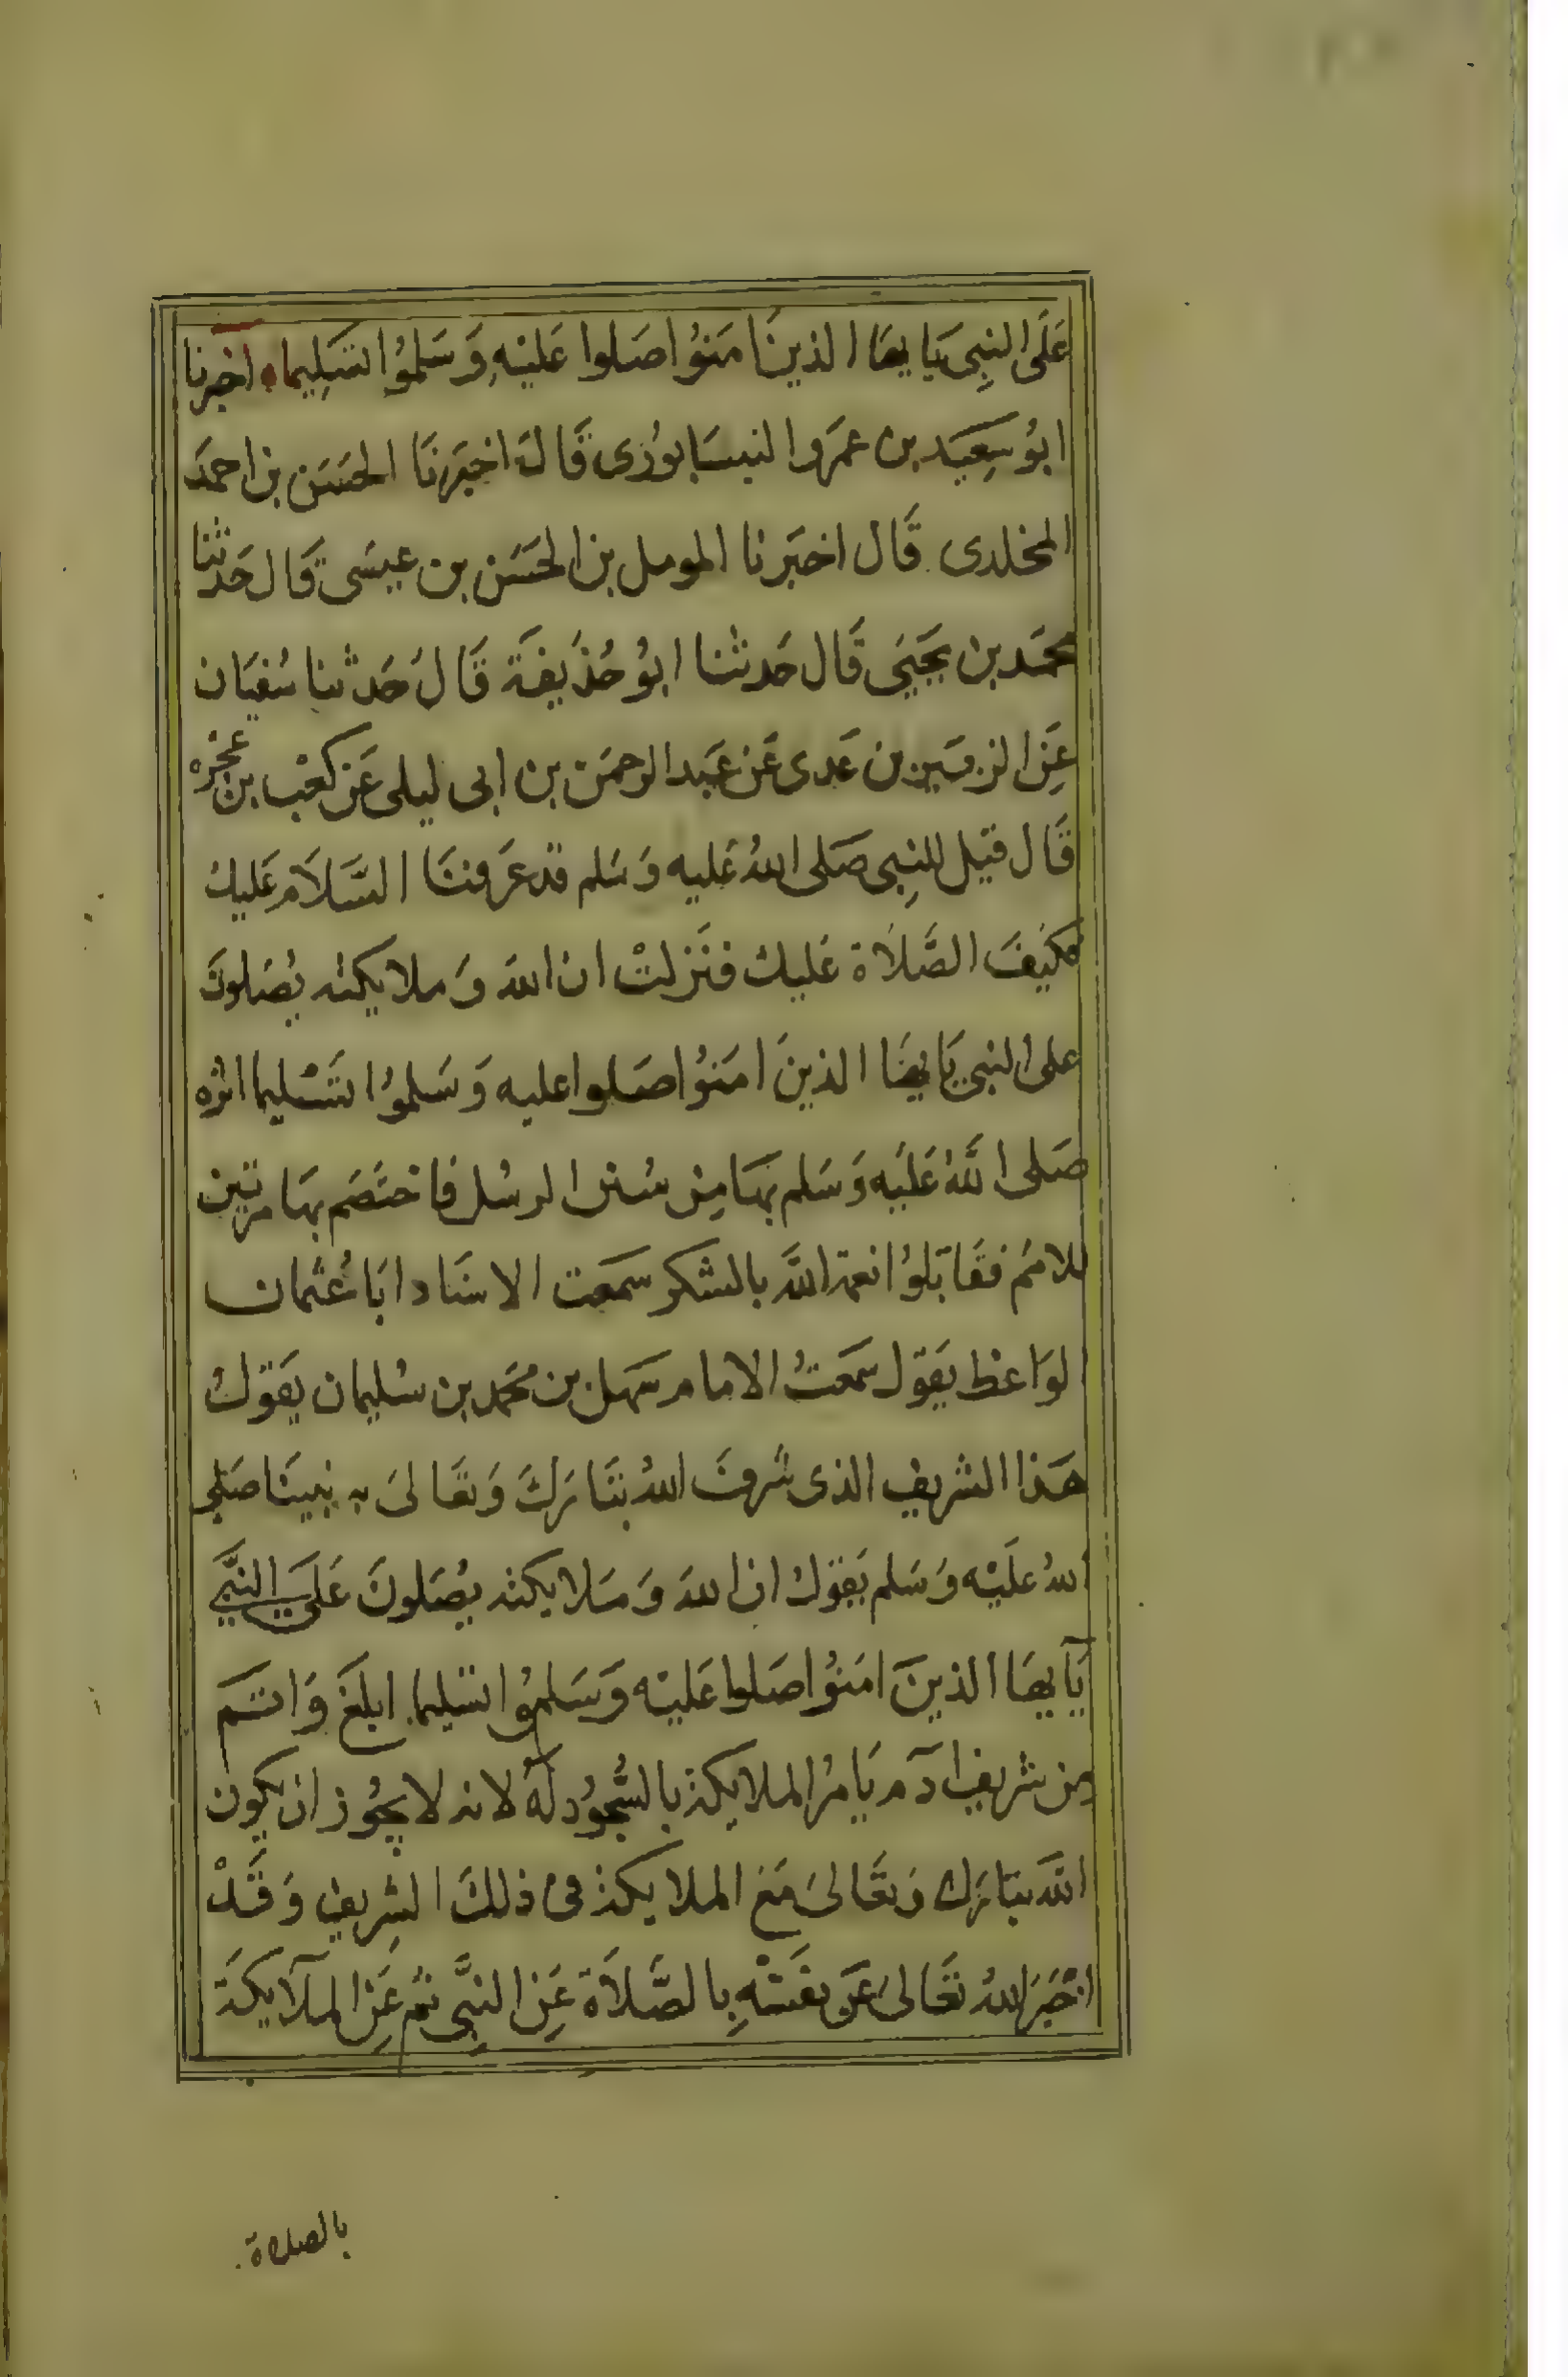 عَلَى النبِى يَا يهَا الذينَ امَنوُا صَلوا عَليْهِ وَسَلموُا تسَلِيما اخبرنا
ابوُ سَعِيَد بن عمَرو النيسَابوُرى قَالَ اخبَرنَا الحسَن بن احمدَ
المخلدى قَال اخبَرنا المومل بن الحسَن بن عيسَى قَال حَدثنا
محمَد بن يَحيَى قَال حَدثنا ابوُ حُذَيفَة قَالَ حَدثنا سُفيَان
عَنِ الزبَير بن عَدى عَن عَبَد الرحمَن بن ابى ليلى عَن كعْب بن عُجْره
قَال قيل للنبِى صَلى اللهُ عَليه وَسَلم قد عَرفنَا السَّلاَم عَليك
فكيَفَ الصَّلاَة عَليك فنَزلتْ ان اللهَ وَملايكته يصَلونَ
على النبى يَا يهَا الذينَ امَنوُا صَلوا عليه وَسَلموُا تسْليما اثره
صَلى اللهُ عَلَيه وَسَلم بهَا مِن سُنن الرسُل فاختصَم بهَا مرتين
للامَم فقَابَلوُا نعمة اللهَ بالشكر سمَعت الاستَاد ابَا عُثمان
لوَاعظ يقَول سمَعتُ الامام سَهل بن محُمَد بن سُليمان يقَولُ
هَذا الشريف الذى شَرفَ اللهُ تبَارَكَ وَتعَالىَ به نبينَا صَلى
اللهُ عَلَيْه وَسَلم بقوَلهُ ان اللهَ وَمَلايكته يصُلونَ عَلىَ النَّبي
يَآ يهَا الذينَ امَنوُا صَلوا عَليْه وَسَلموُا تسَليما ابلَغ وَاتَم
من شريف ادَم يَامرُ الملايكة بالسُّجوُد لهُ لانه لا يجوُز ان يكون
اللهَ تبَارَك وَتعَالىَ مَعَ الملايكة فى ذلكَ الشريف وَقدْ
اخْبَرَ اللهُ تعَالىَ عَن نفسْهِ بالصَّلاَة عَنِ النبَّى ثم عَنِ الملآيكَة
بالصلاة